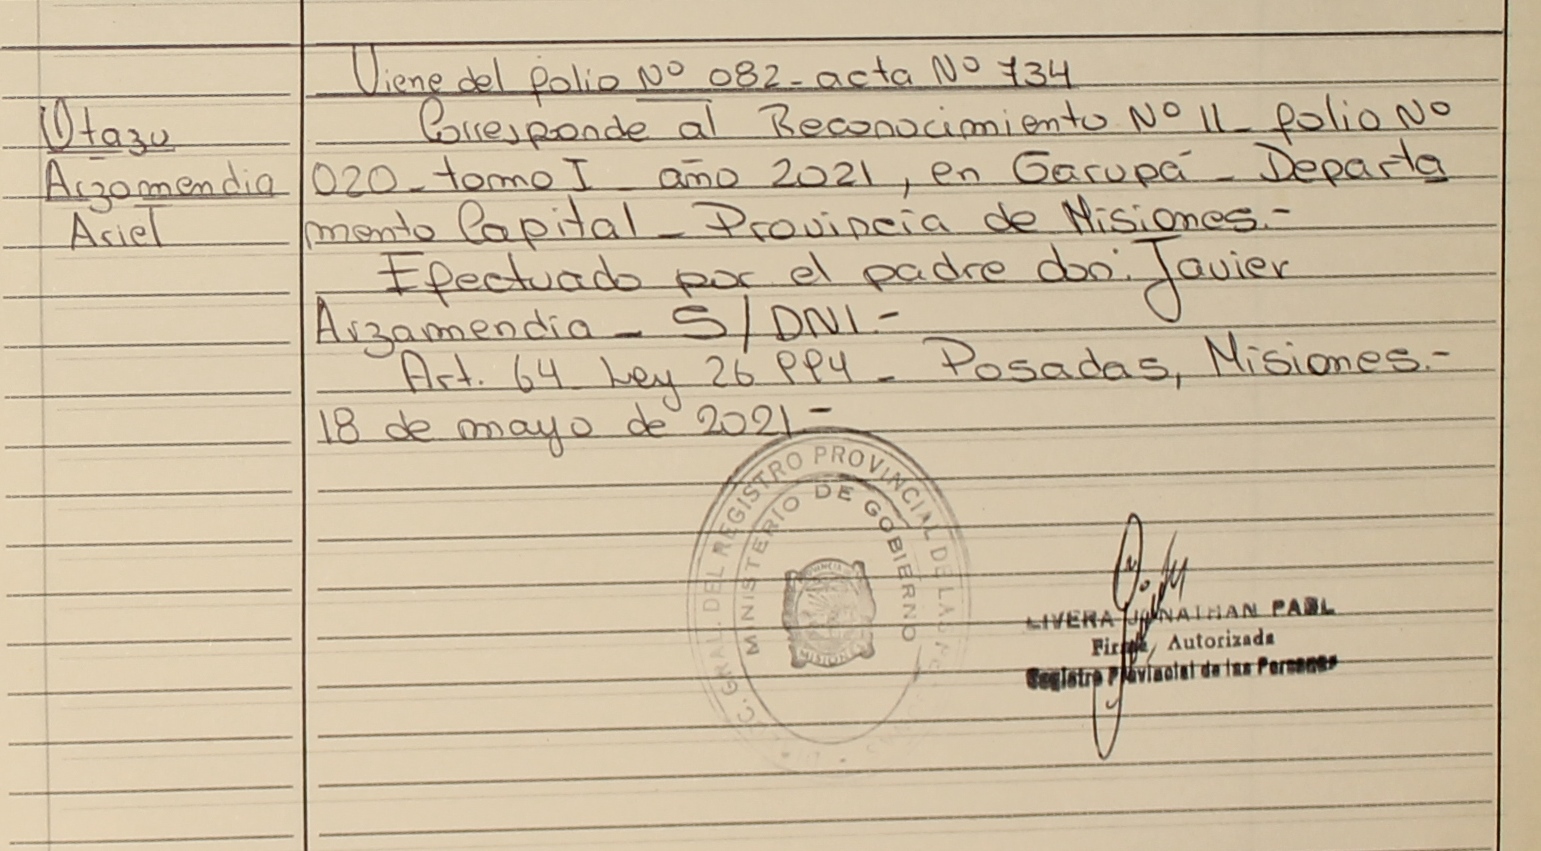 Viene del folio Nº 082 - acta Nº 734
Utazu
Arzamendia
Ariel
Corresponde al Reconocimiento Nº 11 - folio Nº
020 - tomo I - año 2021, en Garupá - Departa
mento Capital - Provincia de Misiones.-
Efectuado por el padre don: Javier
Arzamendia - S/DNI.-
Art. 64 Ley 26994 - Posadas, Misiones.-
18 de mayo de 2021 -
GRAL. DEL REGISTRO PROVINCIAL DE LAS
MINISTERIO DE GOBIERNO
PROVINCIA
MISIONES
LIVERA JONATHAN PABL
Firma Autorizada
Registro Provincial de las Personas